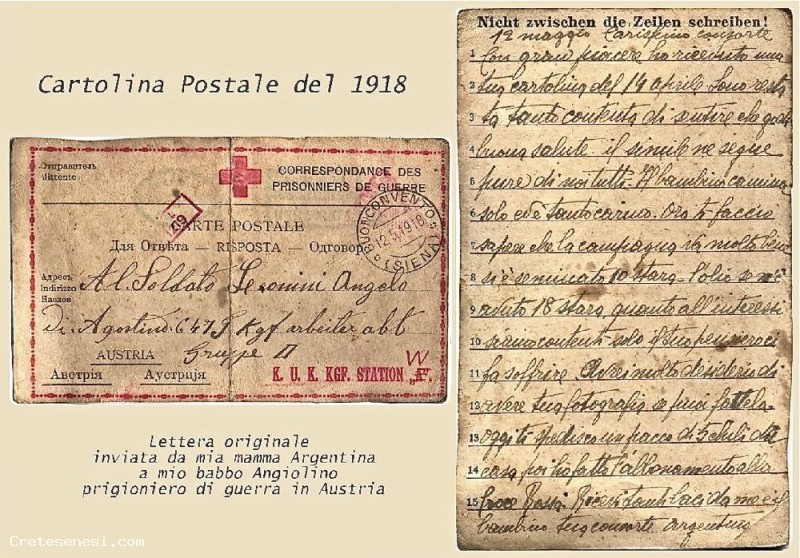 Cartolina Postale del 1918
Отправитель
Mittente
CORRESPONDANCE DES
PRISONNIERS DE GUERRE
CARTE POSTALE
Для Отвѣта — RISPOSTA — Одговоръ
BUONCONVENTO
(SIENA)
Адресъ
Indirizzo
Наслов
Al Soldato Leonini Angelo
di Agostino 6475 Kgf arbeiter abt
Gruppe II
AUSTRIA
Австрія Аустрија
K. U. K. KGF. STATION „F"
W
Lettera originale
inviata da mia mamma Argentina
a mio babbo Angiolino
prigioniero di guerra in Austria
Nicht zwischen die Zeilen schreiben!
12 maggio Carissimo consorte
1 Con gran piacere ho ricevuto una
2 tua cartolina del 19 aprile sono resta
3 ta tanto contenta di sentire che godi
4 buona salute il simile ne segue
5 pure di noi tutti. Il bambino camina
6 solo ed è tanto carino. Ora ti faccio
7 sapere che la campagna va molto bene
8 si è seminato 10 stara l'olio se n'è
9 avuto 18 stara quanto all'interessi
10 siamo contenti solo il tuo pensiero ci
11 fa soffrire. Avrei molto desiderio di
12 avere tua fotografia se puoi fattela
13 oggi ti spedisco un pacco di 5 chili da
14 casa poi ho fatto l'abbonamento alla
15 Croce Rossa Ricevi tanti baci da me e il
bambino tua consorte Argentina
Cretesenesi.com